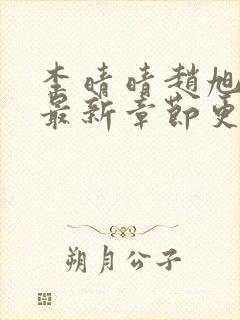 李晴晴趙旭
最新章節更
朔月公子